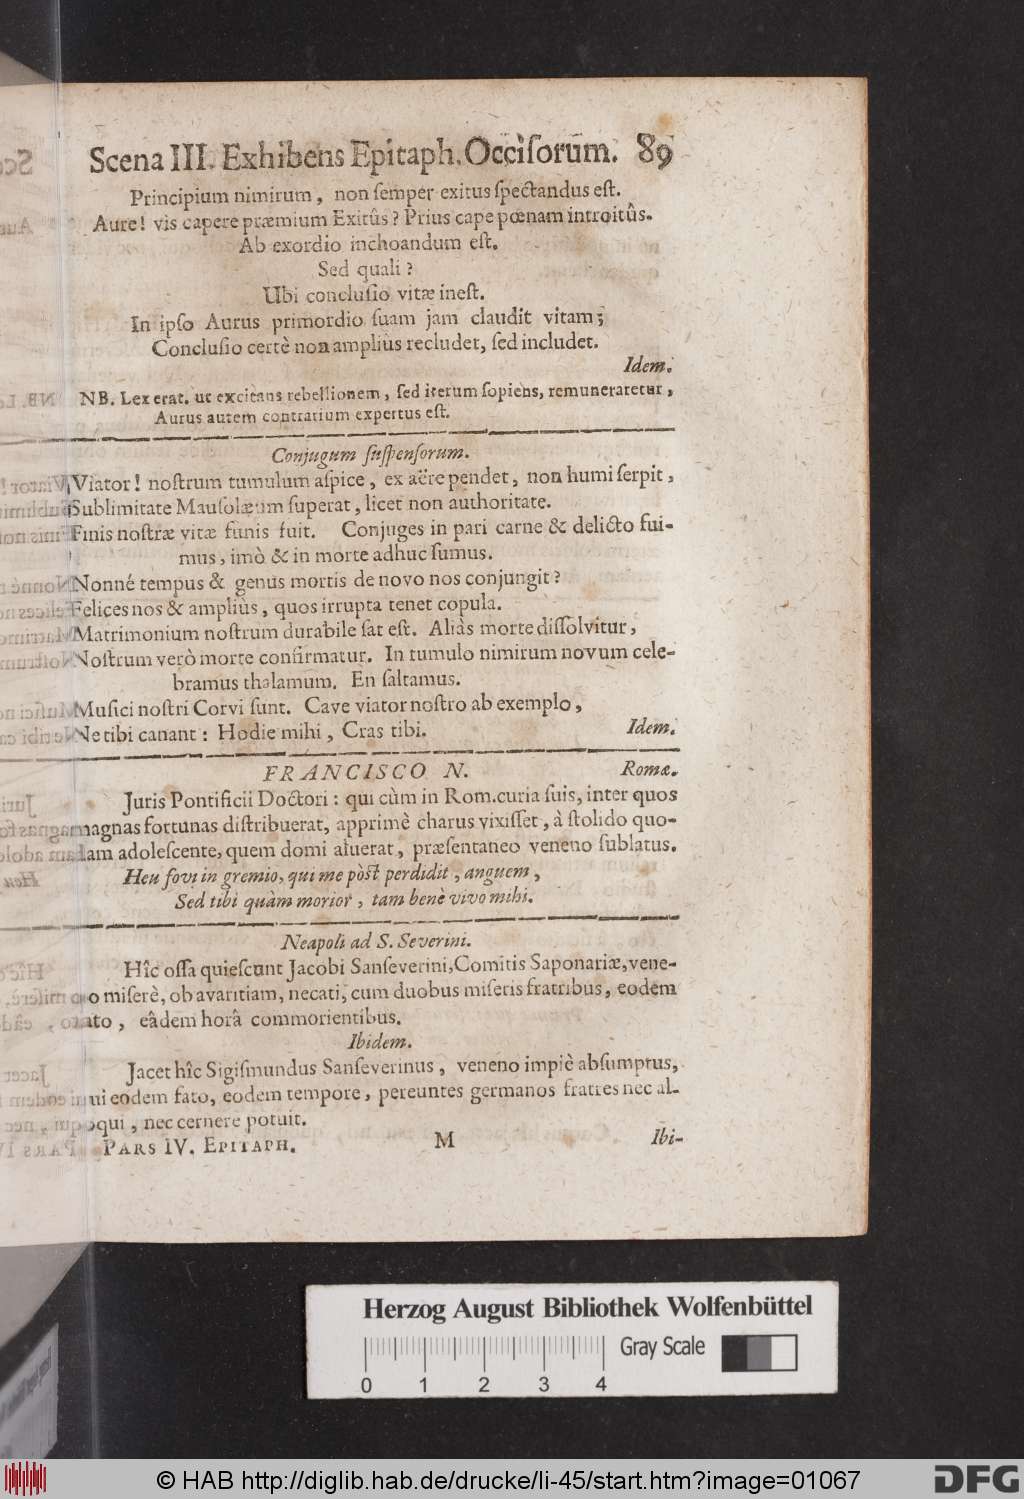 Scena III. Exhibens Epitaph. Occiſorum. 89
Principium nimirum, non ſemper exitus ſpectandus eſt.
Aure! vis capere præmium Exitûs? Prius cape pœnam introitûs.
Ab exordio inchoandum eſt.
Sed quali?
Ubi concluſio vitæ ineſt.
In ipſo Aurus primordio ſuam jam claudit vitam;
Concluſio certè non ampliùs recludet, ſed includet.
Idem.
NB. Lex erat, ut excitans rebellionem, ſed iterum ſopiens, remuneraretur,
Aurus autem contrarium expertus eſt.
Conjugum ſuſpenſorum.
Viator! noſtrum tumulum aſpice, ex aëre pendet, non humi ſerpit,
Sublimitate Mauſolæum ſuperat, licet non authoritate.
Finis noſtræ vitæ funis fuit. Conjuges in pari carne & delicto fui-
mus, imò & in morte adhuc ſumus.
Nonné tempus & genus mortis de novo nos conjungit?
Felices nos & ampliùs, quos irrupta tenet copula.
Matrimonium noſtrum durabile ſat eſt. Aliàs morte diſſolvitur,
Noſtrum verò morte confirmatur. In tumulo nimirum novum cele-
bramus thalamum. En ſaltamus.
Muſici noſtri Corvi ſunt. Cave viator noſtro ab exemplo,
Ne tibi canant: Hodie mihi, Cras tibi. Idem.
FRANCISCO N. Romæ.
Juris Pontificii Doctori: qui cùm in Rom. curia ſuis, inter quos
magnas fortunas diſtribuerat, apprimè charus vixiſſet, à ſtolido quo-
dam adoleſcente, quem domi aluerat, præſentaneo veneno ſublatus.
Heu fovi in gremio, qui me pòſt perdidit, anguem,
Sed tibi quàm morior, tam benè vivo mihi.
Neapoli ad S. Severini.
Hîc oſſa quieſcunt Jacobi Sanſeverini, Comitis Saponariæ, vene-
no miſerè, ob avaritiam, necati, cum duobus miſeris fratribus, eodem
fato, eâdem horâ commorientibus.
Ibidem.
Jacet hîc Sigiſmundus Sanſeverinus, veneno impiè abſumptus,
qui eodem fato, eodem tempore, pereuntes germanos fratres nec al-
loqui, nec cernere potuit.
PARS IV. EPITAPH. M Ibi-
Herzog August Bibliothek Wolfenbüttel
Gray Scale
0 1 2 3 4
© HAB http://diglib.hab.de/drucke/li-45/start.htm?image=01067
DFG